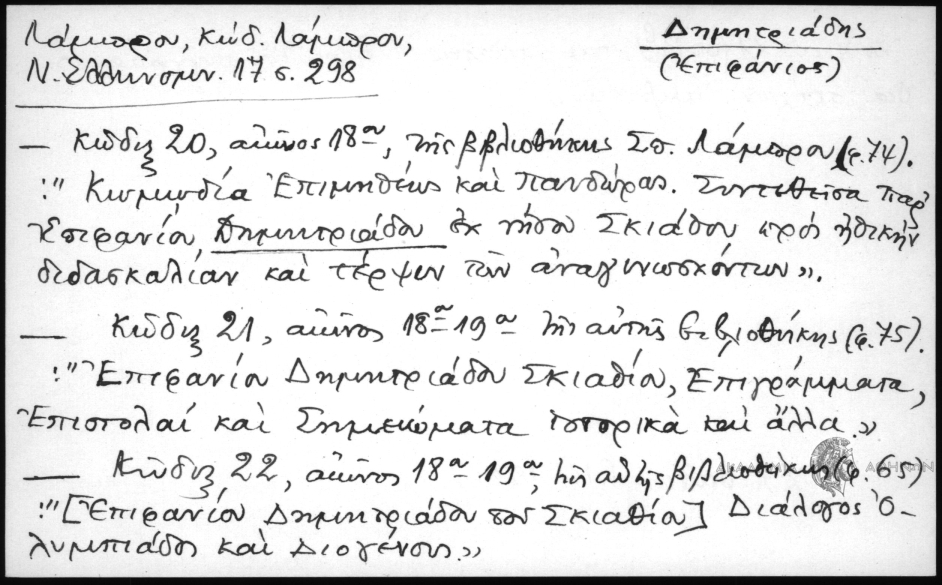 Λάμπρου, Κώδ. Λάμπρου,
Δημητριάδης
Ν. Ἑλληνομν. 17 σ. 298
(Ἐπιφάνιος)
— Κῶδιξ 20, αἰῶνος 18ου, τῆς βιβλιοθήκης Σπ. Λάμπρου (φ. 74).
:" Κωμῳδία Ἐπιμηθέως καὶ Πανδώρας. Συντεθεῖσα παρ'
Ἐπιφανίου Δημητριάδου ἐκ νήσου Σκιάθου πρὸς ἠθικὴν
διδασκαλίαν καὶ τέρψιν τῶν ἀναγινωσκόντων».
— Κῶδιξ 21, αἰῶνος 18ου-19ου τῆς αὐτῆς βιβλιοθήκης (φ. 75).
:" Ἐπιφανίου Δημητριάδου Σκιαθίου, Ἐπιγράμματα,
Ἐπιστολαί καὶ Σημειώματα ἱστορικὰ καὶ ἄλλα.»
— Κῶδιξ 22, αἰῶνος 18ου-19ου, τῆς αὐτῆς βιβλιοθήκης (φ. 65)
:" [Ἐπιφανίου Δημητριάδου τοῦ Σκιαθίου] Διάλογος Ὀ-
λυμπιάδος καὶ Διογένους.»